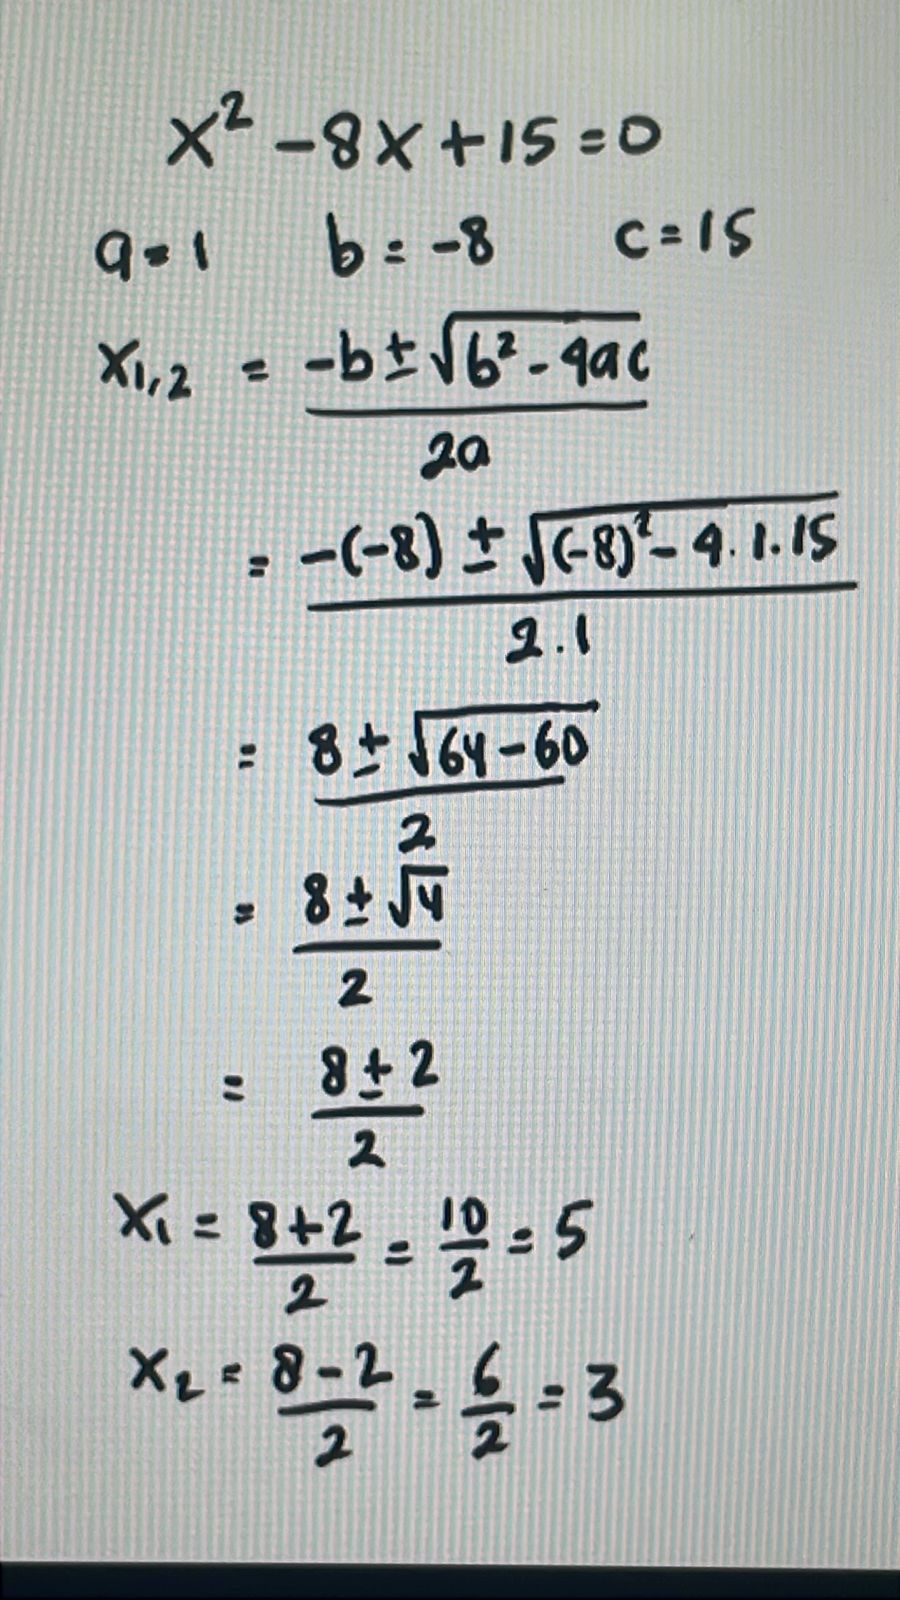 x² - 8x + 15 = 0
a = 1 b = -8 c = 15
x₁,₂ = (-b ± √(b² - 4ac)) / 2a
= (-(-8) ± √((-8)² - 4.1.15)) / 2.1
= (8 ± √(64 - 60)) / 2
= (8 ± √4) / 2
= (8 ± 2) / 2
x₁ = (8 + 2) / 2 = 10/2 = 5
x₂ = (8 - 2) / 2 = 6/2 = 3